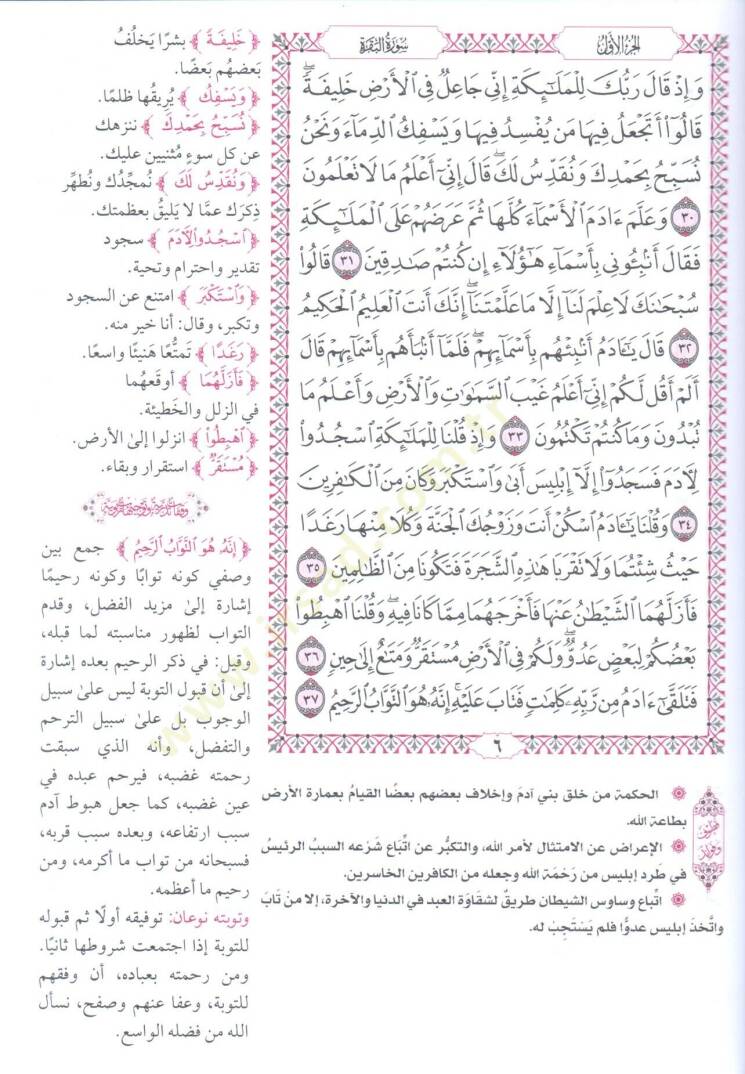 الجزء الأول
سورة البقرة
وَإِذْ قَالَ رَبُّكَ لِلْمَلَٰٓئِكَةِ إِنِّي جَاعِلٌ فِي ٱلْأَرْضِ خَلِيفَةً ۖ
قَالُوٓا۟ أَتَجْعَلُ فِيهَا مَن يُفْسِدُ فِيهَا وَيَسْفِكُ ٱلدِّمَآءَ وَنَحْنُ
نُسَبِّحُ بِحَمْدِكَ وَنُقَدِّسُ لَكَ ۖ قَالَ إِنِّىٓ أَعْلَمُ مَا لَا تَعْلَمُونَ
٣٠ وَعَلَّمَ ءَادَمَ ٱلْأَسْمَآءَ كُلَّهَا ثُمَّ عَرَضَهُمْ عَلَى ٱلْمَلَٰٓئِكَةِ
فَقَالَ أَنۢبِـُٔونِى بِأَسْمَآءِ هَٰٓؤُلَآءِ إِن كُنتُمْ صَٰدِقِينَ ٣١ قَالُوا۟
سُبْحَٰنَكَ لَا عِلْمَ لَنَآ إِلَّا مَا عَلَّمْتَنَآ ۖ إِنَّكَ أَنتَ ٱلْعَلِيمُ ٱلْحَكِيمُ
٣٢ قَالَ يَٰٓـَٔادَمُ أَنۢبِئْهُم بِأَسْمَآئِهِمْ ۖ فَلَمَّآ أَنۢبَأَهُم بِأَسْمَآئِهِمْ قَالَ
أَلَمْ أَقُل لَّكُمْ إِنِّىٓ أَعْلَمُ غَيْبَ ٱلسَّمَٰوَٰتِ وَٱلْأَرْضِ وَأَعْلَمُ مَا
تُبْدُونَ وَمَا كُنتُمْ تَكْتُمُونَ ٣٣ وَإِذْ قُلْنَا لِلْمَلَٰٓئِكَةِ ٱسْجُدُوا۟
لِءَادَمَ فَسَجَدُوٓا۟ إِلَّآ إِبْلِيسَ أَبَىٰ وَٱسْتَكْبَرَ وَكَانَ مِنَ ٱلْكَٰفِرِينَ
٣٤ وَقُلْنَا يَٰٓـَٔادَمُ ٱسْكُنْ أَنتَ وَزَوْجُكَ ٱلْجَنَّةَ وَكُلَا مِنْهَا رَغَدًا
حَيْثُ شِئْتُمَا وَلَا تَقْرَبَا هَٰذِهِ ٱلشَّجَرَةَ فَتَكُونَا مِنَ ٱلظَّٰلِمِينَ ٣٥
فَأَزَلَّهُمَا ٱلشَّيْطَٰنُ عَنْهَا فَأَخْرَجَهُمَا مِمَّا كَانَا فِيهِ ۖ وَقُلْنَا ٱهْبِطُوا۟
بَعْضُكُمْ لِبَعْضٍ عَدُوٌّ ۖ وَلَكُمْ فِى ٱلْأَرْضِ مُسْتَقَرٌّ وَمَتَٰعٌ إِلَىٰ حِينٍ ٣٦
فَتَلَقَّىٰٓ ءَادَمُ مِن رَّبِّهِۦ كَلِمَٰتٍ فَتَابَ عَلَيْهِ ۚ إِنَّهُۥ هُوَ ٱلتَّوَّابُ ٱلرَّحِيمُ ٣٧
٦
﴿خَلِيفَةً﴾ بشرًا يَخلُفُ
بَعضهُم بَعضًا.
﴿وَيَسْفِكُ﴾ يُرِيقُها ظلمًا.
﴿نُسَبِّحُ بِحَمْدِكَ﴾ ننزهك
عن كل سوءٍ مُثنيين عليك.
﴿وَنُقَدِّسُ لَكَ﴾ نُمجِّدُك ونُطهِّر
ذِكرَك عمَّا لا يَليقُ بعظمتك.
﴿ٱسْجُدُوا۟ لِءَادَمَ﴾ سجود
تقدير واحترام وتحية.
﴿وَٱسْتَكْبَرَ﴾ امتنع عن السجود
وتكبر، وقال: أنا خير منه.
﴿رَغَدًا﴾ تَمتُّعًا هَنيئًا واسعًا.
﴿فَأَزَلَّهُمَا﴾ أوقعَهُما
في الزلل والخَطيئة.
﴿ٱهْبِطُوا۟﴾ انزلوا إلى الأرض.
﴿مُسْتَقَرٌّ﴾ استقرار وبقاء.
﴿إِنَّهُۥ هُوَ ٱلتَّوَّابُ ٱلرَّحِيمُ﴾ جمع بين
وصفي كونه توابًا وكونه رحيمًا
إشارة إلى مزيد الفضل، وقدم
التواب لظهور مناسبته لما قبله،
وقيل: في ذكر الرحيم بعده إشارة
إلى أن قبول التوبة ليس على سبيل
الوجوب بل على سبيل الترحم
والتفضل، وأنه الذي سبقت
رحمته غضبه، فيرحم عبده في
عين غضبه، كما جعل هبوط آدم
سبب ارتفاعه، وبعده سبب قربه،
فسبحانه من تواب ما أكرمه، ومن
رحيم ما أعظمه.
وتوبته نوعان: توفيقه أولًا ثم قبوله
للتوبة إذا اجتمعت شروطها ثانيًا.
ومن رحمته بعباده، أن وفقهم
للتوبة، وعفا عنهم وصفح، نسأل
الله من فضله الواسع.
الحكمة من خلق بني آدمَ وإخلاف بعضهم بعضًا القيامُ بعمارة الأرض
بطاعة الله.
الإعراض عن الامتثال لأمر الله، والتكبُّر عن اتِّباع شَرعه السببُ الرئيسُ
في طَرد إبليس من رَحْمَة الله وجعله من الكافرين الخاسرين.
اتِّباع وساوس الشيطان طريقٌ لشقاوَة العبد في الدنيا والآخرة، إلا مَنْ تَابَ
واتَّخذَ إبليس عدوًّا فلم يَسْتَجِبْ له.